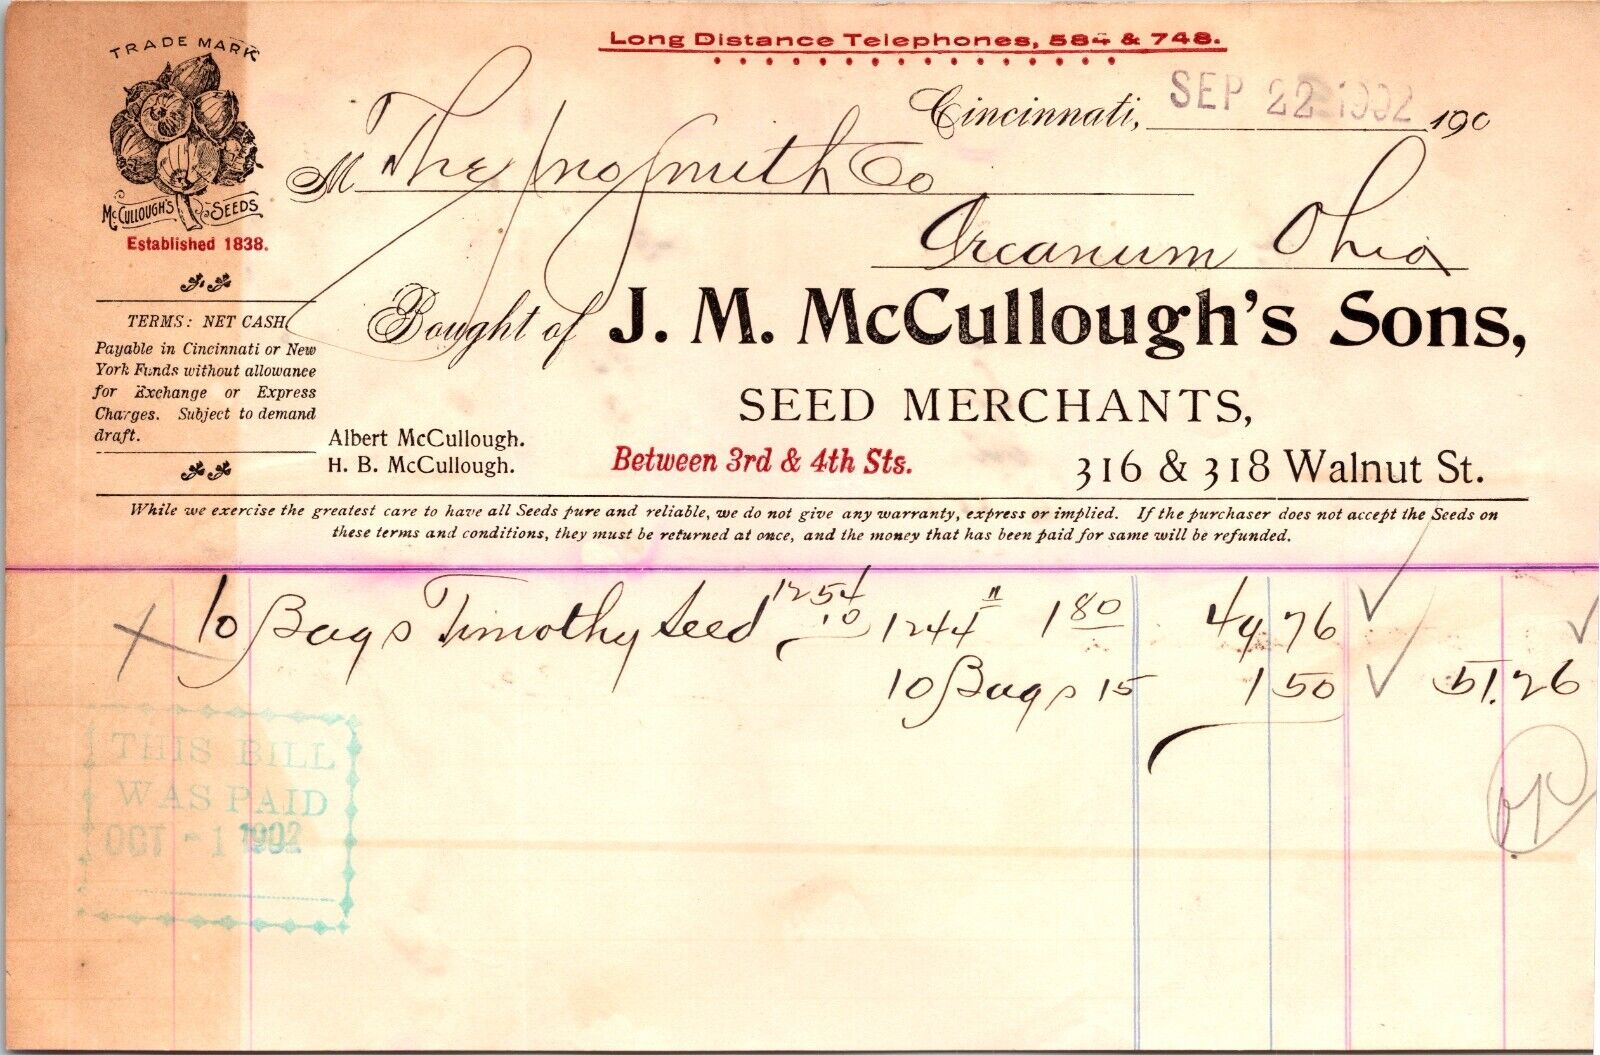 Long Distance Telephones, 584 & 748.
TRADE MARK
McCULLOUGH'S SEEDS
Established 1838.
Cincinnati, SEP 22 1902 190
M The Jno Smith Co
Arcanum Ohio
Bought of J. M. McCullough's Sons,
SEED MERCHANTS,
Between 3rd & 4th Sts. 316 & 318 Walnut St.
TERMS: NET CASH.
Payable in Cincinnati or New
York Funds without allowance
for Exchange or Express
Charges. Subject to demand
draft.
Albert McCullough.
H. B. McCullough.
While we exercise the greatest care to have all Seeds pure and reliable, we do not give any warranty, express or implied. If the purchaser does not accept the Seeds on
these terms and conditions, they must be returned at once, and the money that has been paid for same will be refunded.
10 Bags Timothy Seed 1254 10 1244 " 1 80 49 76
10 Bags 15 1 50 51.26
THIS BILL
WAS PAID
OCT -1 1902